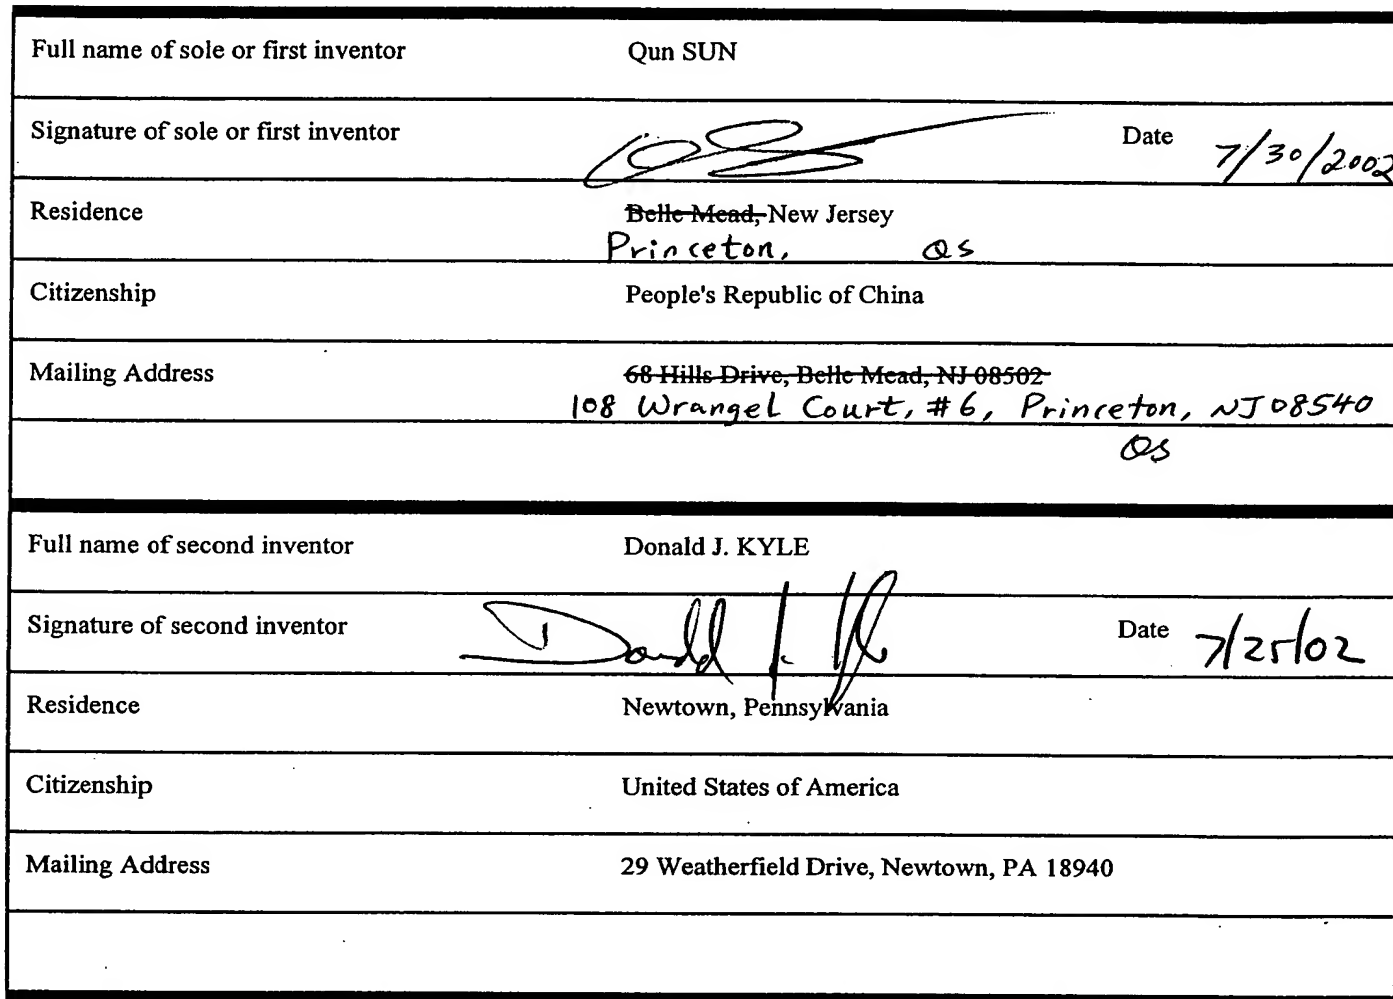 Full name of sole or first inventor Qun SUN
Signature of sole or first inventor Date 7/30/2002
Residence Belle Mead, New Jersey
Princeton, QS
Citizenship People's Republic of China
Mailing Address 68 Hills Drive, Belle Mead, NJ 08502
108 Wrangel Court, #6, Princeton, NJ 08540
QS
Full name of second inventor Donald J. KYLE
Signature of second inventor Donald J. Kyle Date 7/25/02
Residence Newtown, Pennsylvania
Citizenship United States of America
Mailing Address 29 Weatherfield Drive, Newtown, PA 18940